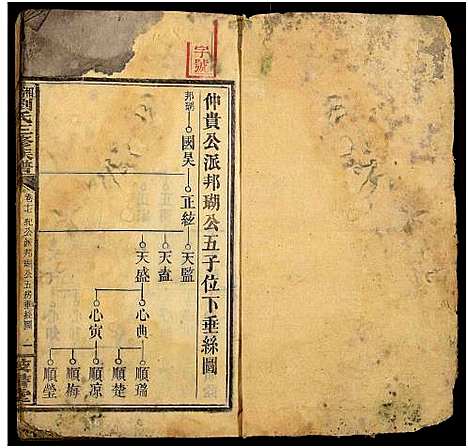 字號
仲貴公派邦瑚公五子位下垂絲圖
邦瑚
國昊
正紘
天監
天盍
天盛
心典
心寅
順瑞
順楚
順凉
順梅
順瑩
劉氏三修族譜
卷十七 公派邦瑚公五房垂絲圖 一